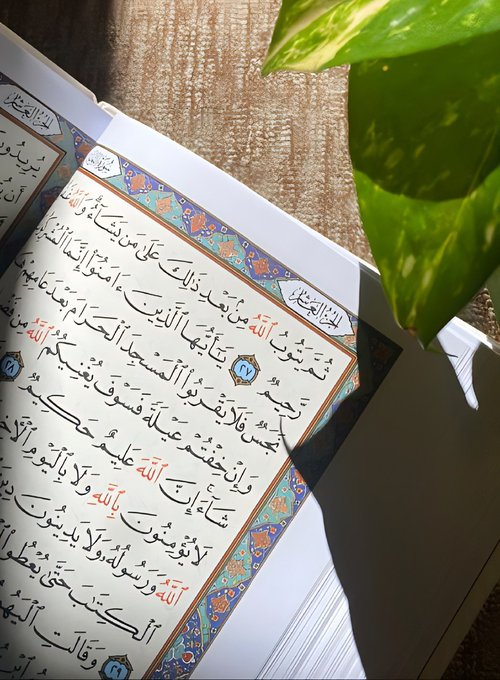 الجزء العاشر
يُرِيدُونَ
أَن
الجزء العاشر
ثُمَّ يَتُوبُ ٱللَّهُ مِنۢ بَعْدِ ذَٰلِكَ عَلَىٰ مَن يَشَآءُ وَٱللَّهُ
رَّحِيمٌ ٢٧ يَـٰٓأَيُّهَا ٱلَّذِينَ ءَامَنُوٓا۟ إِنَّمَا
نَجَسٌ فَلَا يَقْرَبُوا۟ ٱلْمَسْجِدَ ٱلْحَرَامَ بَعْدَ عَامِهِمْ
وَإِنْ خِفْتُمْ عَيْلَةً فَسَوْفَ يُغْنِيكُمُ ٱللَّهُ مِن
شَآءَ إِنَّ ٱللَّهَ عَلِيمٌ حَكِيمٌ ٢٨
لَا يُؤْمِنُونَ بِٱللَّهِ وَلَا بِٱلْيَوْمِ
ٱللَّهُ وَرَسُولُهُۥ وَلَا يَدِينُونَ
ٱلْكِتَـٰبَ حَتَّىٰ يُعْطُوا۟
٢٩ وَقَالَتِ